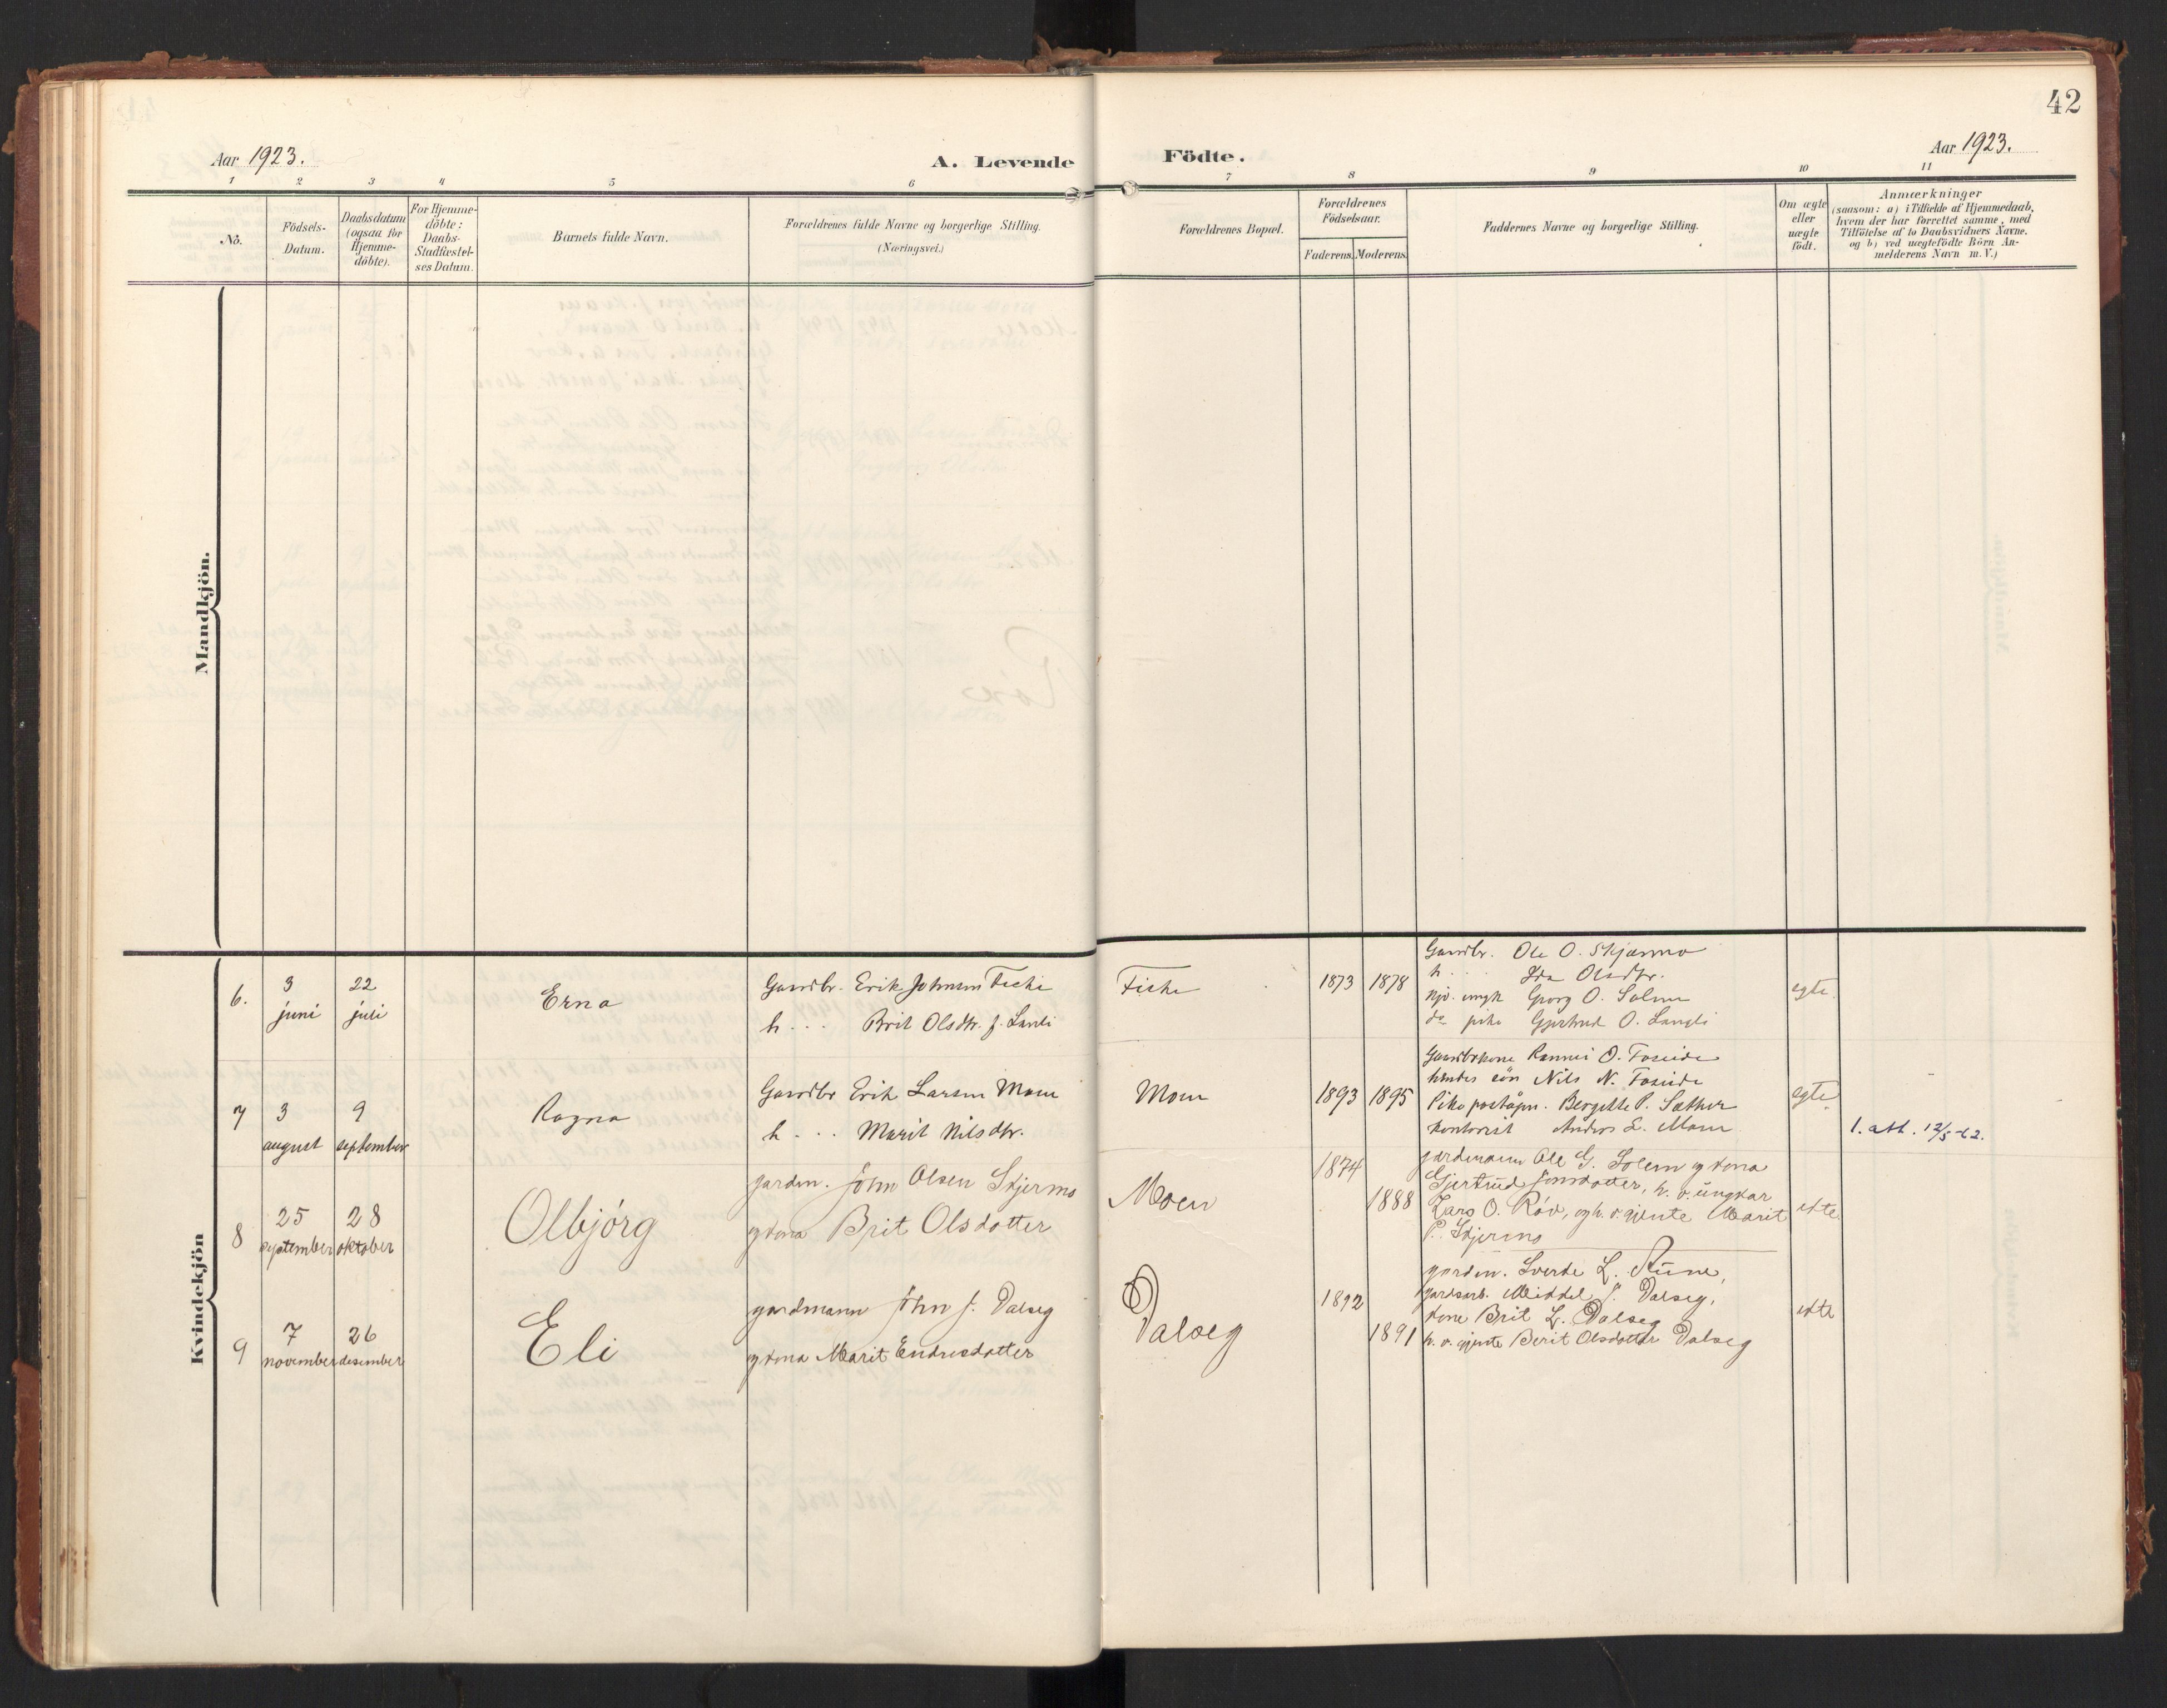 42
Aar 1923.
A. Levende
Födte.
Aar 1923.
1 2 3 4 5 6 7 8 9 10 11
No.
Födsels-
Datum.
Daabsdatum
(ogsaa for
Hjemme-
döbte).
For Hjemme-
döbte:
Daabs-
Stadfæstel-
ses Datum.
Barnets fulde Navn.
Forældrenes fulde Navne og borgerlige Stilling.
(Næringsvei.)
Forældrenes Bopæl.
Forældrenes
Födselsaar.
Faderens. Moderens.
Faddernes Navne og borgerlige Stilling.
Om ægte
eller
uægte
födt.
Anmærkninger
(saasom: a) i Tilfælde af Hjemmedaab,
hvem der har forrettet samme, med
Tilföielse af to Daabsvidners Navne.
og b) ved uægtefödte Börn An-
melderens Navn m. V.)
Mandkjön.
Kvindekjön
6.
3
juni
22
juli
Erna
Gaardbr. Erik Johnsen Fiske
h. . . Brit Olsdtr. f. Langli
Fiske
1873 1878
Gaardbr. Ole O. Skjærmo
h. . Ida Olsdtr.
Kjo. ungk Georg O. Solem
do pike Gjertrud O. Langli
egte
7
3
august
9
september
Ragna
Gaardbr Erik Larsen Moen
h. . . Marit Nilsdtr.
Moen
1893 1895
Gaardbrkone Rannei O. Foseide
hendes sön Nils N. Foseide
Pike poståpn. Bergitte P. Sæther
Kontorist Anders L. Moen
egte
1. att. 12/5-62.
8
25
september
28
oktober
Olbjórg
gardm. John Olsen Skjermo
og kona Brit Olsdotter
Moen
1874
1888
gardmann Ole G. Solem og kona
Gjertrud Jonsdotter, h. v. ungkar
Lars O. Röv, og h. v. gjente Marit
P. Skjermo
ekte
9
7
november
26
desember
Eli
gardmann John J. Dalseg
og kona Marit Endresdotter
Dalseg
1892
1891
gardm. Sverke L. Aune,
gardarb. Meiddel J. Dalseg,
kone Brit L. Dalseg
h. v. gjente Berit Olsdotter Dalseg
ekte